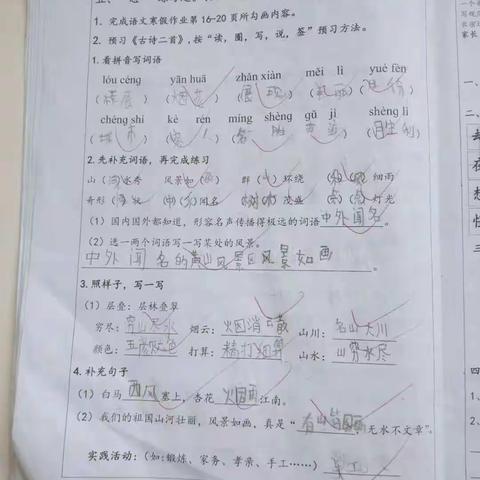 1. 完成语文寒假作业第16-20页所勾画内容。
2. 预习《古诗二首》,按“读,圈,写,说,签”预习方法。
1. 看拼音写词语
lóu céng yān huā zhǎn xiàn měi lì yuè fèn
(楼层) (烟花) (展现) (美丽) (月份)
chéng shì kè rén míng shèng gǔ jì shèng lì
(城市) (客人) (名胜 ) (胜利)
2. 先补充词语，再完成练习
山( )水秀 风景如( ) 群( )环绕 ( )细雨
奇形( )状 (中)(外)闻名 ( )茂盛 (点)(点)灯光
(1) 国内国外都知道，形容名声传播得极远的词语中外闻名。
(2) 选一两个词语写一写某处的风景。
中外闻名的黄山风景区风景如画。
3. 照样子，写一写
(1) 层叠：层林叠翠
穷尽：穷山尽水 烟云：烟消云散 山川：名山大川
颜色：五颜六色 打算：精打细算 山水：山穷水尽
4. 补充句子
(1) 白马西风塞上，杏花烟雨江南。
(2) 我们的祖国山河壮丽，风景如画，真是“有山皆图画，无水不文章”。
实践活动：(如:锻炼、家务、孝亲、手工……)